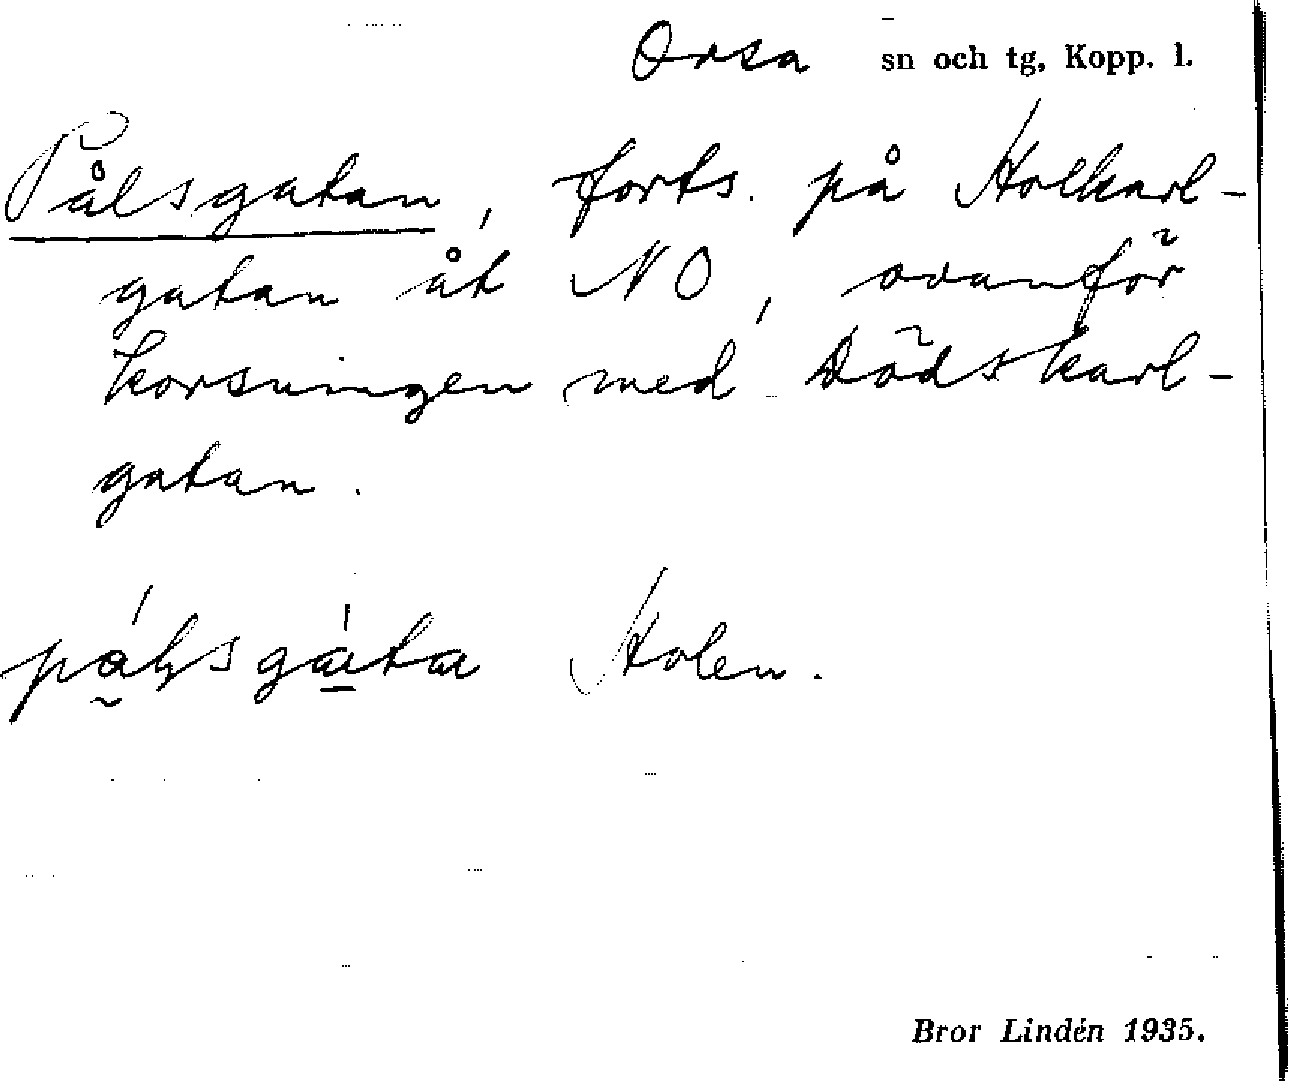 Orsa sn och tg, Kopp. l.
Pålsgatan, forts. på Holkarl-
gatan åt NO, ovanför
korsningen med Dödskarl-
gatan.
Holen.
Bror Lindén 1935.